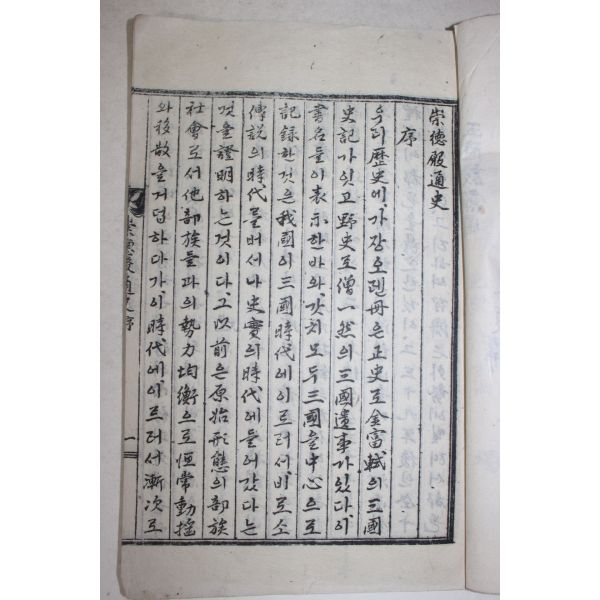 崇德殿通史
序
우리歷史에가장오랜冊은正史로金富軾의三國
史記가잇고野史로僧一然의三國遺事가있다이
書名들이表示한바와갓치모두三國을中心으로
記録한것은我國이三國時代에이르러서비로소
傳說의時代를버서나史實의時代에들어갔다는
것을證明하는것이다그以前은原始形態의部族
社會로서他部族들과의勢力均衡으로恒常動搖
와移散을거듭하다가이時代에이르러서漸次로
崇德殿通史序
一